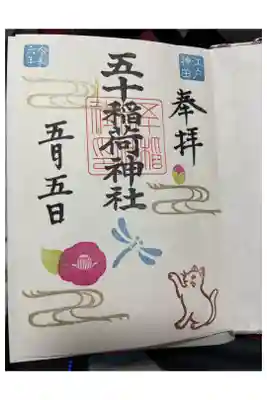 江戸神田
奉拝
五十稲荷神社
五月五日